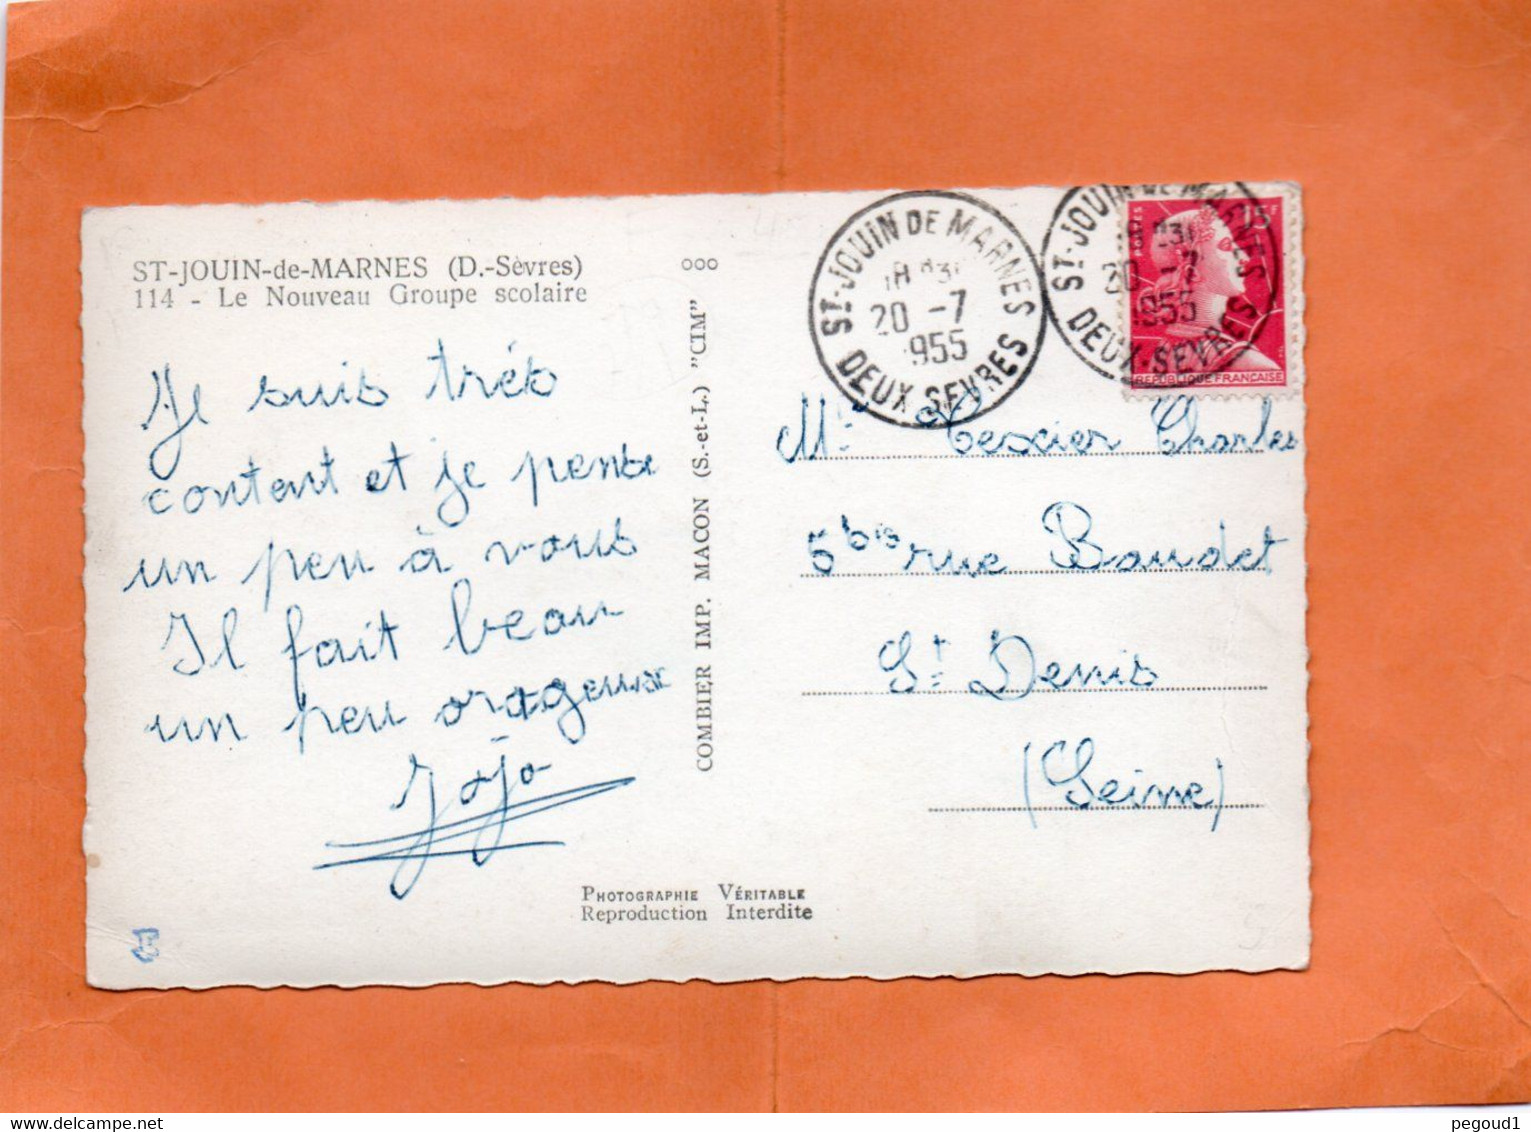 ST-JOUIN-de-MARNES (D.-Sèvres)
114 - Le Nouveau Groupe scolaire
Je suis très
content et je pense
un peu à vous
Il fait beau
un peu orageux
Jojo
COMBIER IMP. MACON (S.-et-L.) "CIM"
ooo
PHOTOGRAPHIE VÉRITABLE
Reproduction Interdite
ST-JOUIN DE MARNES
20 -7
1955
DEUX SEVRES
ST-JOUIN DE MARNES
20 -7
1955
DEUX-SEVRES
POSTES
15F
REPUBLIQUE FRANÇAISE
Mr Texier Charles
5 bis rue Baudet
St Denis
(Seine)
pegoud1